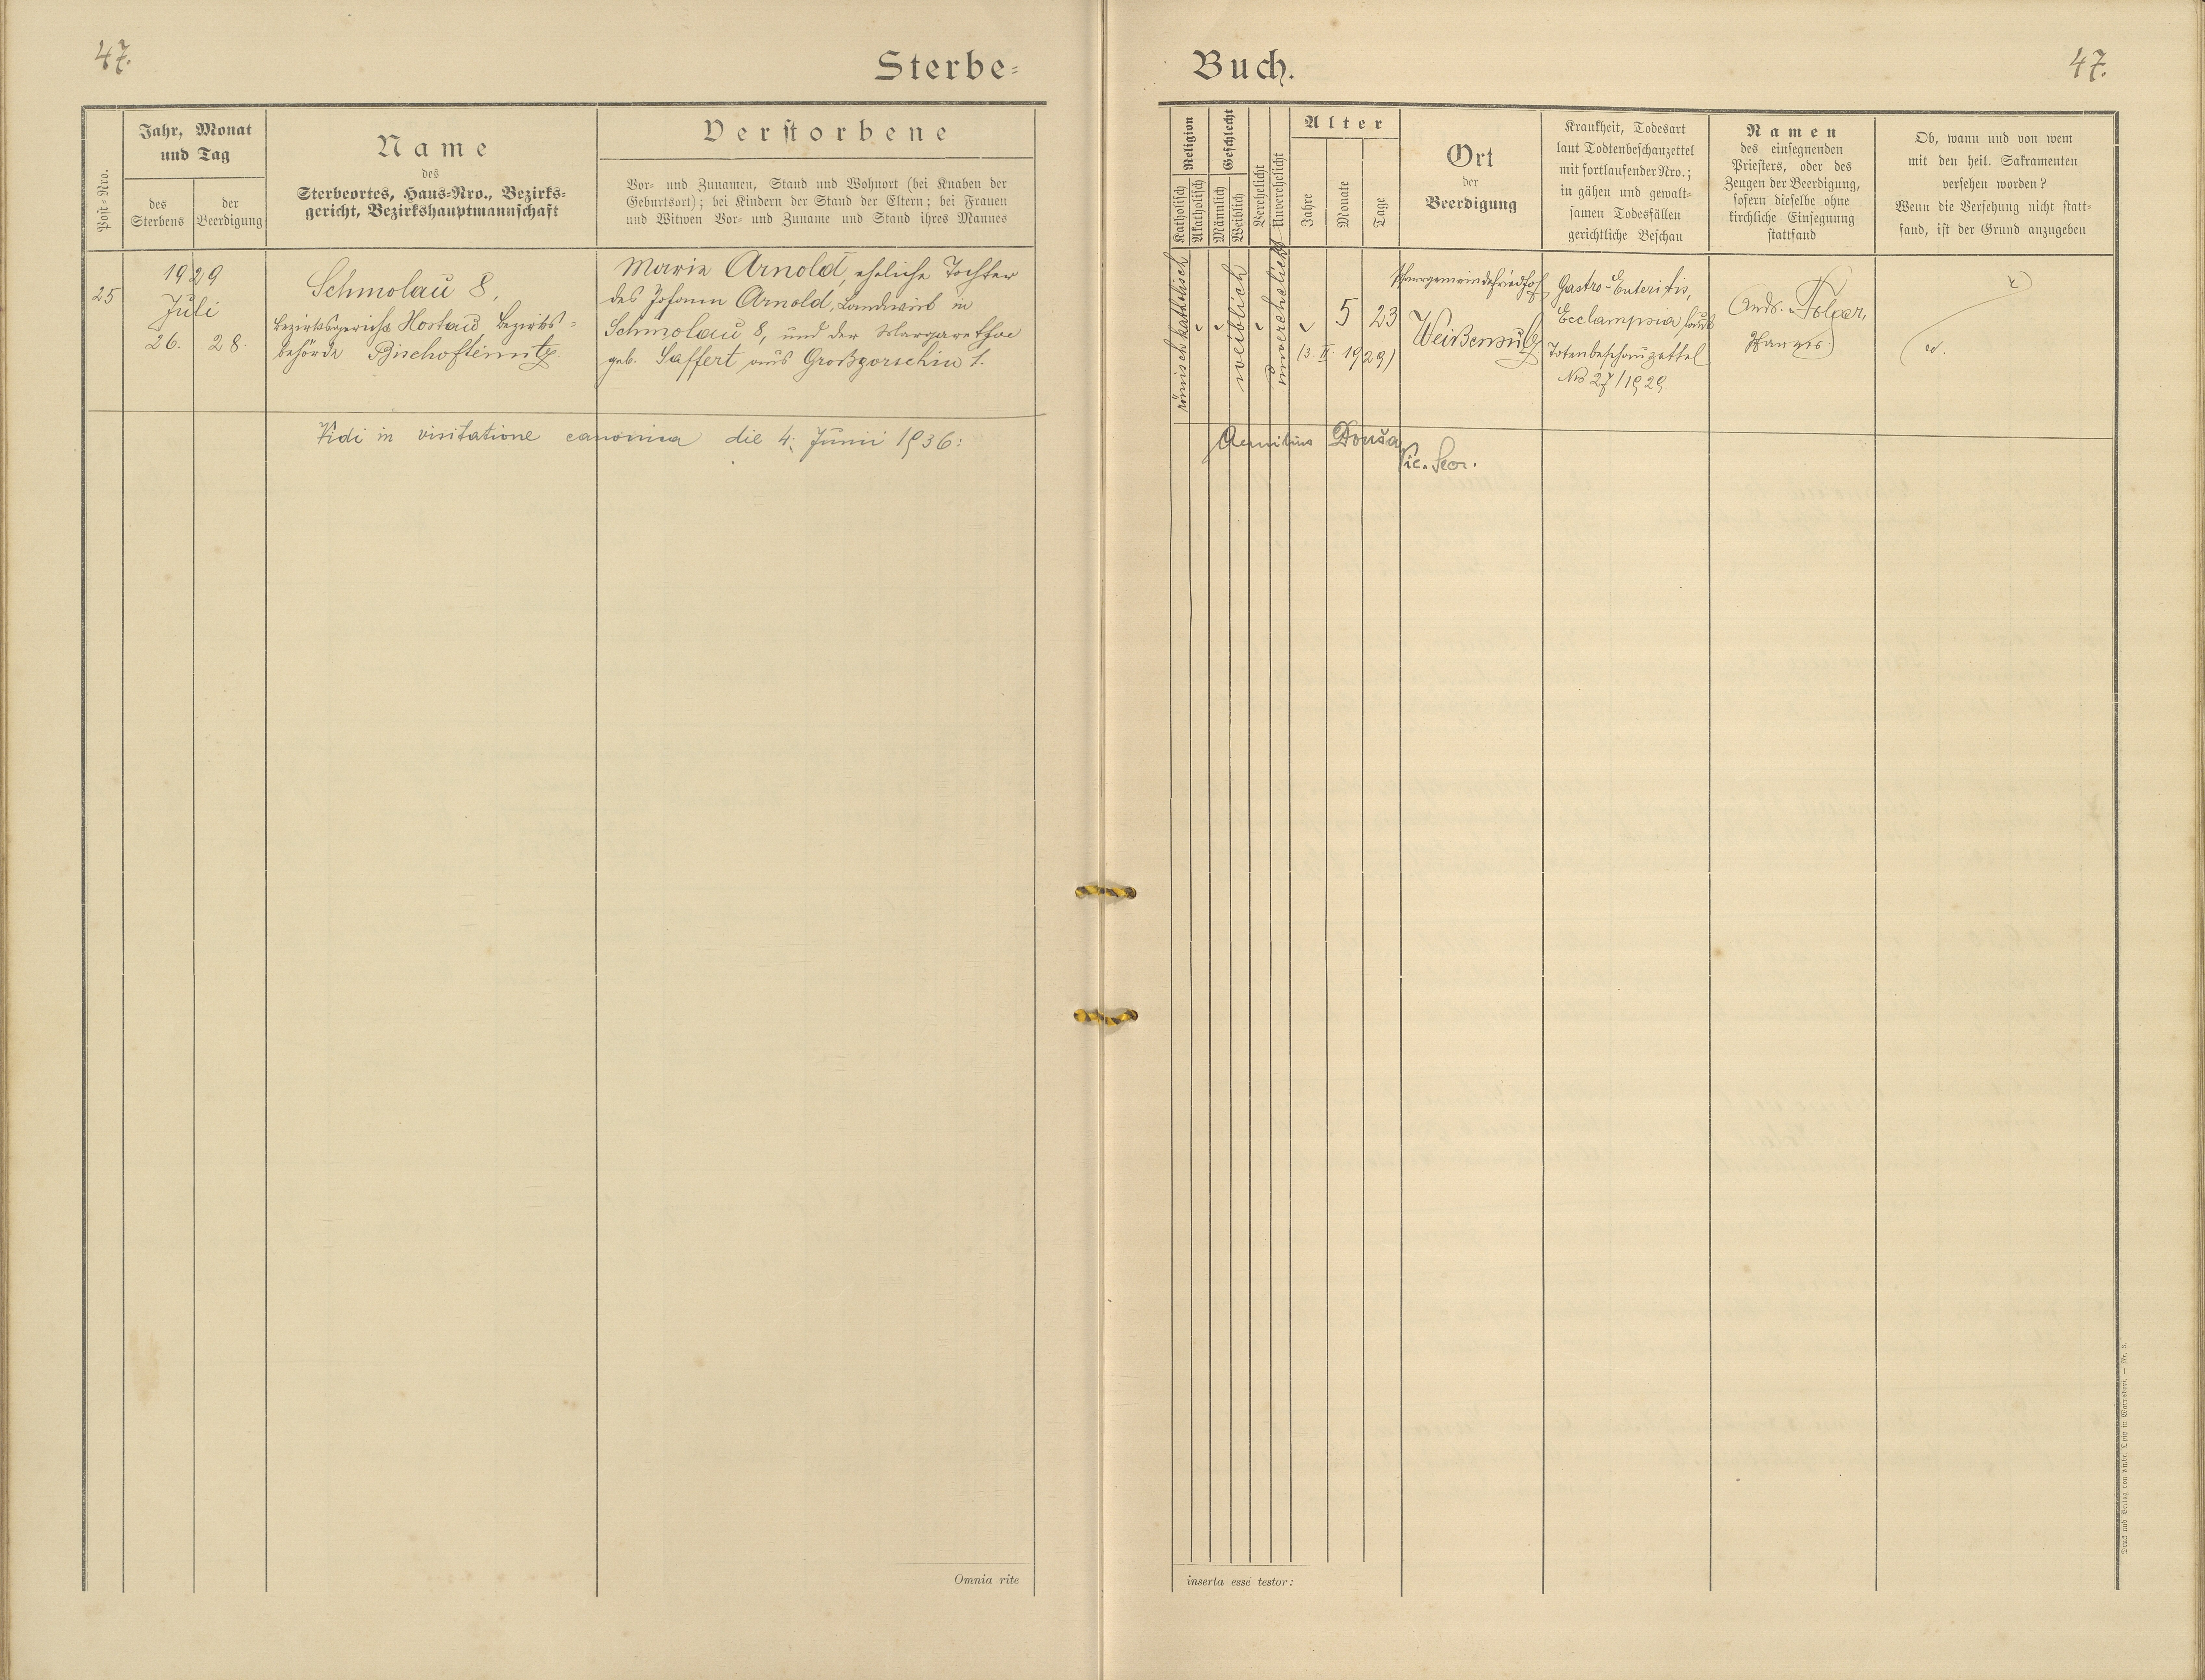 47.
Sterbe-
Jahr, Monat
und Tag
Post-Nro.
des
Sterbens
der
Beerdigung
Name
des
Sterbeortes, Haus-Nro., Bezirks-
gericht, Bezirkshauptmannschaft
Verstorbene
Vor- und Zunamen, Stand und Wohnort (bei Knaben der
Geburtsort); bei Kindern der Stand der Eltern; bei Frauen
und Witwen Vor- und Zuname und Stand ihres Mannes
25
1929
Juli
26. 28.
Schmolau 8,
Bezirksgericht Hostau, Bezirks-
behörde Bischofteinitz.
Marie Arnold, eheliche Tochter
des Johann Arnold, Landwirts in
Schmolau 8, und der Margarethe
geb. Saffert aus Großgorschin 1.
Vidi in visitatione canonica die 4. Junii 1936:
Omnia rite
Buch.
47.
Religion
Katholisch
Akatholisch
Geschlecht
Männlich
Weiblich
Verehelicht
Unverehelicht
Alter
Jahre
Monate
Tage
Ort
der
Beerdigung
Krankheit, Todesart
laut Todtenbeschauzettel
mit fortlaufender Nro.;
in gähen und gewalt-
samen Todesfällen
gerichtliche Beschau
Namen
des einsegnenden
Priesters, oder des
Zeugen der Beerdigung,
sofern dieselbe ohne
kirchliche Einsegnung
stattfand
Ob, wann und von wem
mit den heil. Sakramenten
versehen worden?
Wenn die Versehung nicht statt-
fand, ist der Grund anzugeben
römisch katholisch
weiblich
unverehelicht
5 23
(3. II. 1929)
Pfarrgemeindefriedhof
Weißensulz
Gastro-Enteritis,
Ecclampsia laut
Totenbeschauzettel
No 27/1929.
And.
Pfarrer.
Aemilius Douša
Vic. Secr.
inserta esse testor: